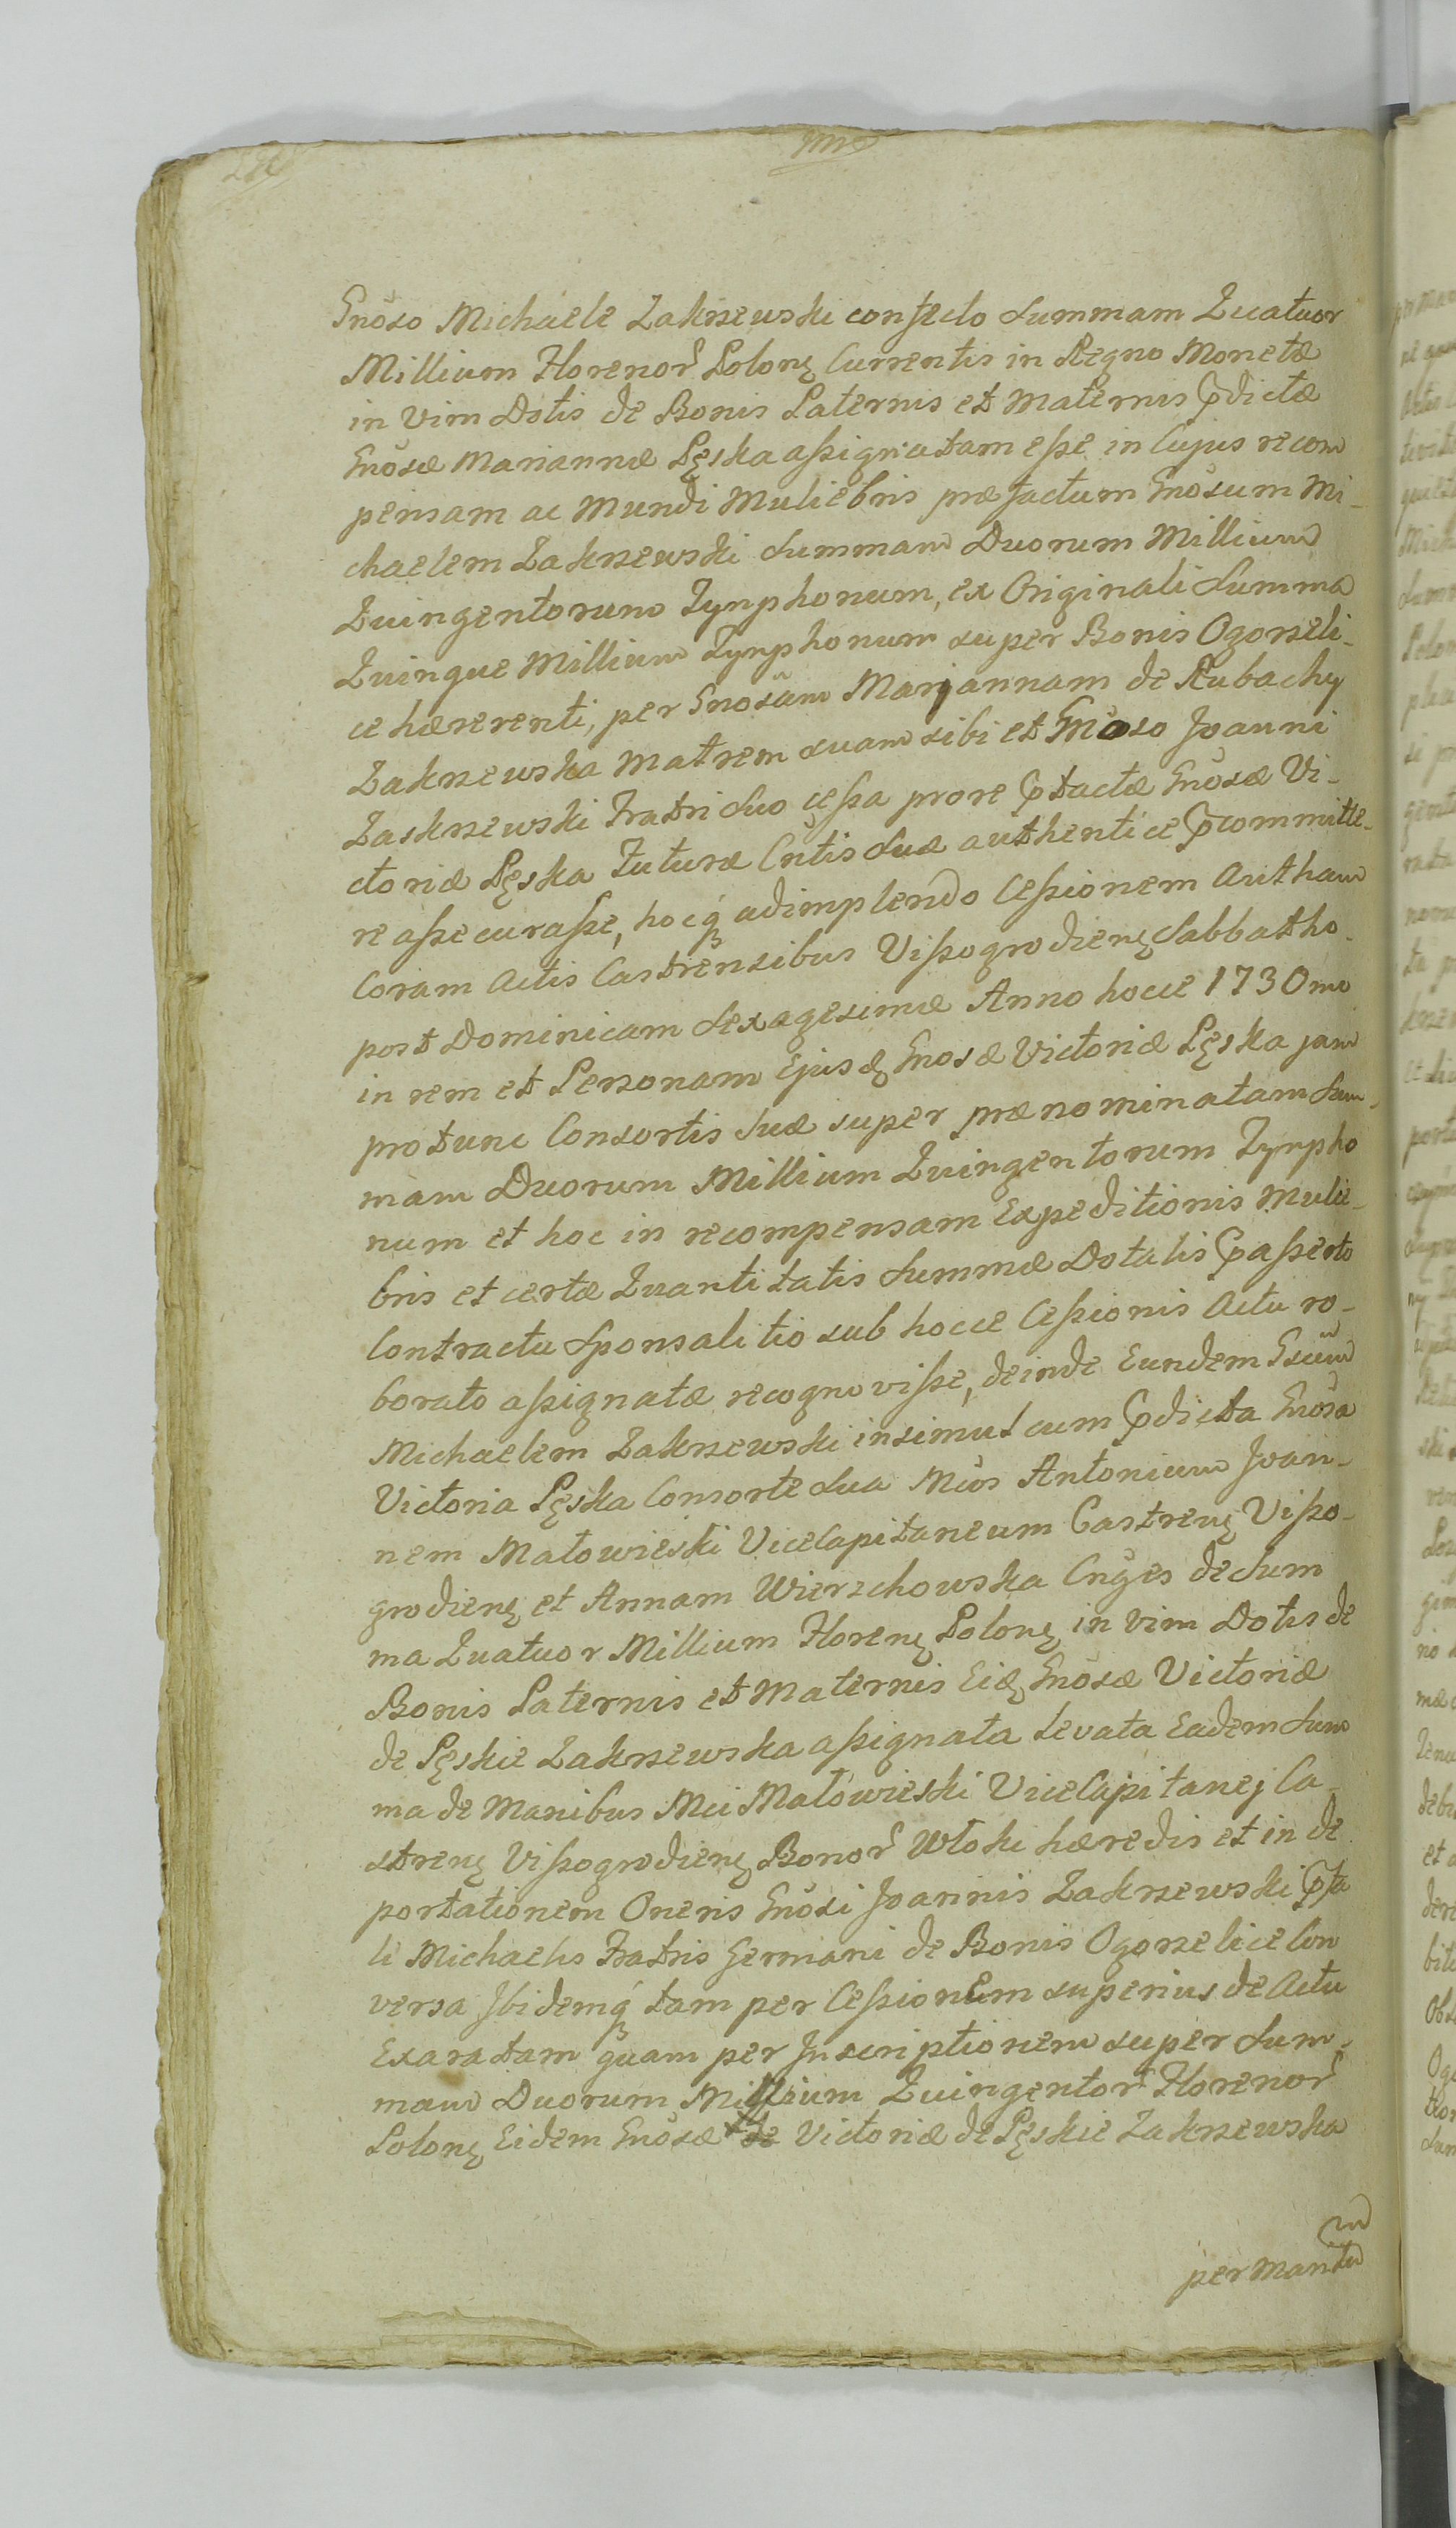 Gnoso Michaele Zakrzewski confecto Summam Quatuor
Millium Florenor Polon Currentis in Regno Monetæ
in Vim Dotis de Bonis Paternis et Maternis Prædictæ
Gnosæ Mariannæ Pęska aßignatam eße in Cujus recom
pensam ac Mundi Muliebris præfactum Gnosum Mi-
chaelem Zakrzewski Summam Duorum Millium
Quingentorum Tynphonum, ex Originali Summa
Quinque Millium Tynphonum super Bonis Ogorzeli-
ce hærerenti, per Gnosam Mariannam de Rubachy
Zakrzewska Matrem suam sibi et Gnoso Joanni
Zaskrzewski Fratri Suo ceßa prore Ptactæ Gnosæ Vi-
ctoriæ Pęska Futuræ Cntis Suæ authentice Pcommitte-
re aßecuraße, hocq adimplendo Ceßionem Autham
Coram Actis Castrensibus Vißogrodien Sabbatho
post Dominicam Sexagesimæ Anno hocce 1730mo
in rem et Personam Ejusd Gnosæ Victoriæ Pęska jam
protunc Consortis Suæ super prænominatam Sum-
mam Duorum Millium Quingentorum Tynpho
num et hoc in recompensam Expeditionis Mulie-
bris et certæ Quantitatis Summæ Dotalis Paßerto
Contractu Sponsalitio sub hocce Ceßionis Actu ro-
borato aßignatæ recognoviße, deinde Eundem Gsum
Michaelem Zakrzewski insimul cum Pdicta Gnosa
Victoria Pęska Consorte Sua Mcos Antonium Joan-
nem Małowieski ViceCapitaneum Castren Vißo-
grodien et Annam Wierzchowska Cnges de Sum
ma Quatuor Millium Floren Polon in Vim Dotis de
Bonis Paternis et Maternis Eid Gnosæ Victoriæ
de Pęskie Zakrzewska aßignata levata Eadem Sum
ma de Manibus Mci Małowieski ViceCapitanej Ca-
stren Vißogrodien Bonor Włoki hæredis et in de
portationem Oneris Gnosi Joannis Zakrzewski Pfa
ti Michaelis Fratris Germani de Bonis Ogorzelice Con
versa Ibidemq tam per Ceßionem superius de Actu
Exaratam quam per Inscriptionem super Sum-
mam Duorum Millium Quingentor Florenor
Polon Eidem Gnosæ de Victoriæ de Pęskie Zakrzewska